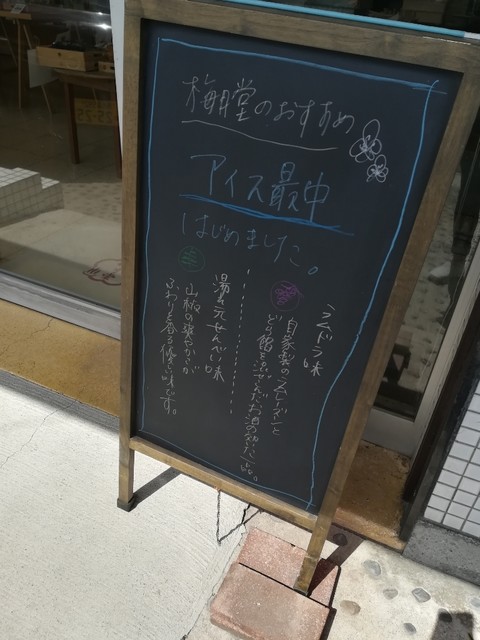 梅月堂のおすすめ
アイス最中
はじめました。
ラムドラ味
自家製のラムレーズンと
どら餡を混ぜこんだお酒の効いた一品。
湯元せんべい味
山椒の爽やかさが
ふわりと香る優しい味です。